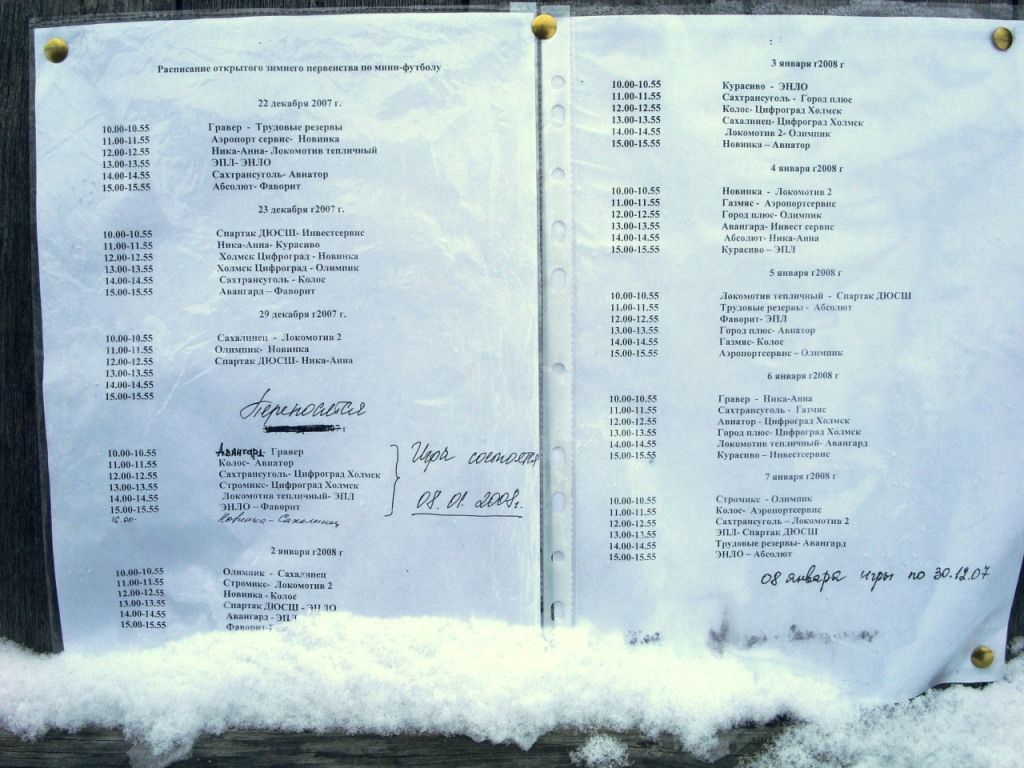 Расписание открытого зимнего первенства по мини-футболу
22 декабря 2007 г.
10.00-10.55 Гравер - Трудовые резервы
11.00-11.55 Аэропорт сервис- Новинка
12.00-12.55 Ника-Анна- Локомотив тепличный
13.00-13.55 ЭПЛ- ЭНЛО
14.00-14.55 Сахтрансуголь- Авиатор
15.00-15.55 Абсолют- Фаворит
23 декабря г2007 г.
10.00-10.55 Спартак ДЮСШ- Инвестсервис
11.00-11.55 Ника-Анна- Курасиво
12.00-12.55 Холмск Цифроград - Новинка
13.00-13.55 Холмск Цифроград - Олимпик
14.00-14.55 Сахтрансуголь - Колос
15.00-15.55 Авангард – Фаворит
29 декабря г2007 г.
10.00-10.55 Сахалинец - Локомотив 2
11.00-11.55 Олимпик- Новинка
12.00-12.55 Спартак ДЮСШ- Ника-Анна
13.00-13.55
14.00-14.55
15.00-15.55
Переносятся
г
10.00-10.55 Авангард- Гравер
11.00-11.55 Колос- Авиатор
12.00-12.55 Сахтрансуголь- Цифроград Холмск
13.00-13.55 Стромикс- Цифроград Холмск
14.00-14.55 Локомотив тепличный- ЭПЛ
15.00-15.55 ЭНЛО – Фаворит
16.00- Новинка - Сахалинец
Игра состоится
08.01.2008г.
2 января г2008 г
10.00-10.55 Олимпик - Сахалинец
11.00-11.55 Стромикс- Локомотив 2
12.00-12.55 Новинка - Колос
13.00-13.55 Спартак ДЮСШ - ЭНЛО
14.00-14.55 Авангард - ЭПЛ
15.00-15.55 Фаворит-
:
3 января г2008 г
10.00-10.55 Курасиво - ЭНЛО
11.00-11.55 Сахтрансуголь - Город плюс
12.00-12.55 Колос- Цифроград Холмск
13.00-13.55 Сахалинец- Цифроград Холмск
14.00-14.55 Локомотив 2- Олимпик
15.00-15.55 Новинка – Авиатор
4 января г2008 г
10.00-10.55 Новинка - Локомотив 2
11.00-11.55 Газмяс - Аэропортсервис
12.00-12.55 Город плюс- Олимпик
13.00-13.55 Авангард- Инвест сервис
14.00-14.55 Абсолют- Ника-Анна
15.00-15.55 Курасиво – ЭПЛ
5 января г2008 г
10.00-10.55 Локомотив тепличный - Спартак ДЮСШ
11.00-11.55 Трудовые резервы - Абсолют
12.00-12.55 Фаворит- ЭПЛ
13.00-13.55 Город плюс- Авиатор
14.00-14.55 Газмяс- Колос
15.00-15.55 Аэропортсервис – Олимпик
6 января г2008 г
10.00-10.55 Гравер - Ника-Анна
11.00-11.55 Сахтрансуголь - Газмяс
12.00-12.55 Авиатор - Цифроград Холмск
13.00-13.55 Город плюс- Цифроград Холмск
14.00-14.55 Локомотив тепличный- Авангард
15.00-15.55 Курасиво – Инвестсервис
7 января г2008 г
10.00-10.55 Стромикс - Олимпик
11.00-11.55 Колос- Аэропортсервис
12.00-12.55 Сахтрансуголь – Локомотив 2
13.00-13.55 ЭПЛ- Спартак ДЮСШ
14.00-14.55 Трудовые резервы- Авангард
15.00-15.55 ЭНЛО – Абсолют
08 января игры по 30.12.07